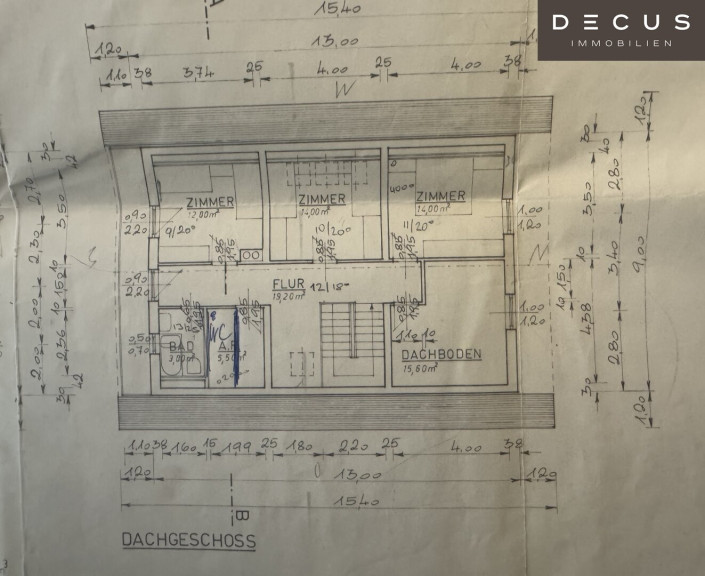 DECUS
IMMOBILIEN
15,40
13,00
1,20
1,10 38 3,74 25 4,00 25 4,00 38
W
ZIMMER
12,00m²
9/20°
ZIMMER
14,00m²
10/20°
ZIMMER
14,00m²
11/20°
0,90
2,20
1,00
1,20
0,85
1,95
0,85
1,95
0,85
1,95
N
FLUR 12/18°
19,20m²
0,90
2,20
1,00
1,20
0,50
0,70
BAD
3,00m²
WC
A.R.
1,10 10
DACHBODEN
15,60m²
30
2,70
2,30
2,00
2,00
30
3,50
10
1,50
10
2,36
42
30
3,50
10
4,38
30
40
2,80
3,40
2,80
1,20
9,00
1,20
10 1,50
1,10 38 1,60 15 1,99 25 1,80 2,20 25 4,00 38
1,20 13,00 1,20
15,40
B
DACHGESCHOSS